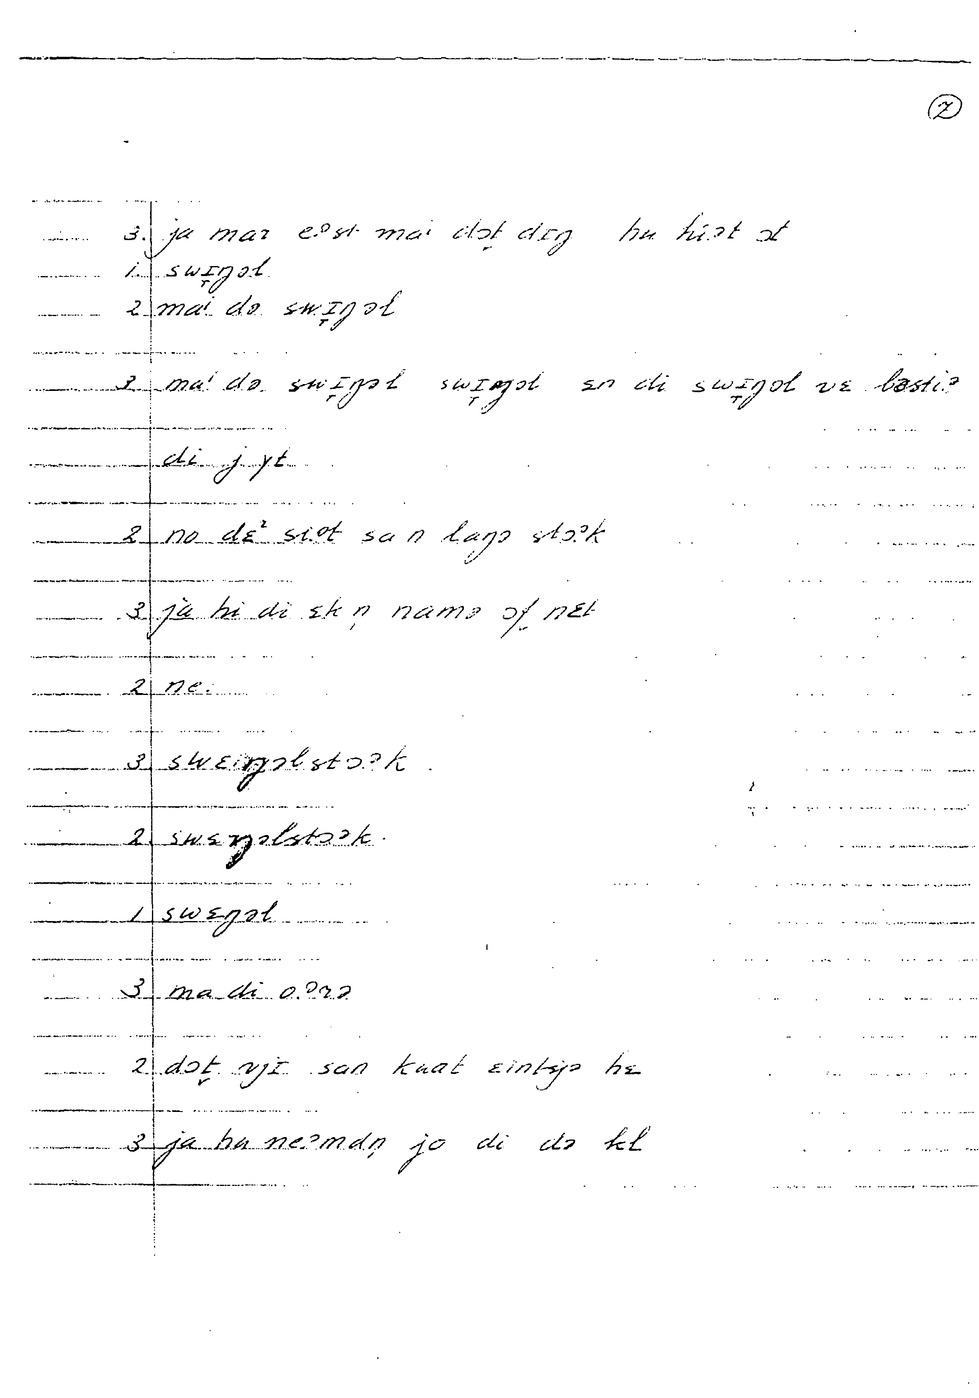 7
3. ja mar eᵊst mai dɔt dɪŋ hu hiət ət
1. swɪŋəl
2 mai də swɪŋəl
3 mai də swɪŋəl swɪŋəl ɛn di swɪŋəl vɛ bəstiə
di jyt
2 no dɛ² siət sa n laŋə stɔək
3 ja hi di ɛk n̩ namə ɔf nɛt
2 ne.
3 swɛiŋəlstɔək
2. swɛŋəlstɔək.
1 swɛŋəl
3 ma di o.ərə
2 dɔt vjɪ san kuat hɛ
3 ja hu neəmdn̩ jo di də kl